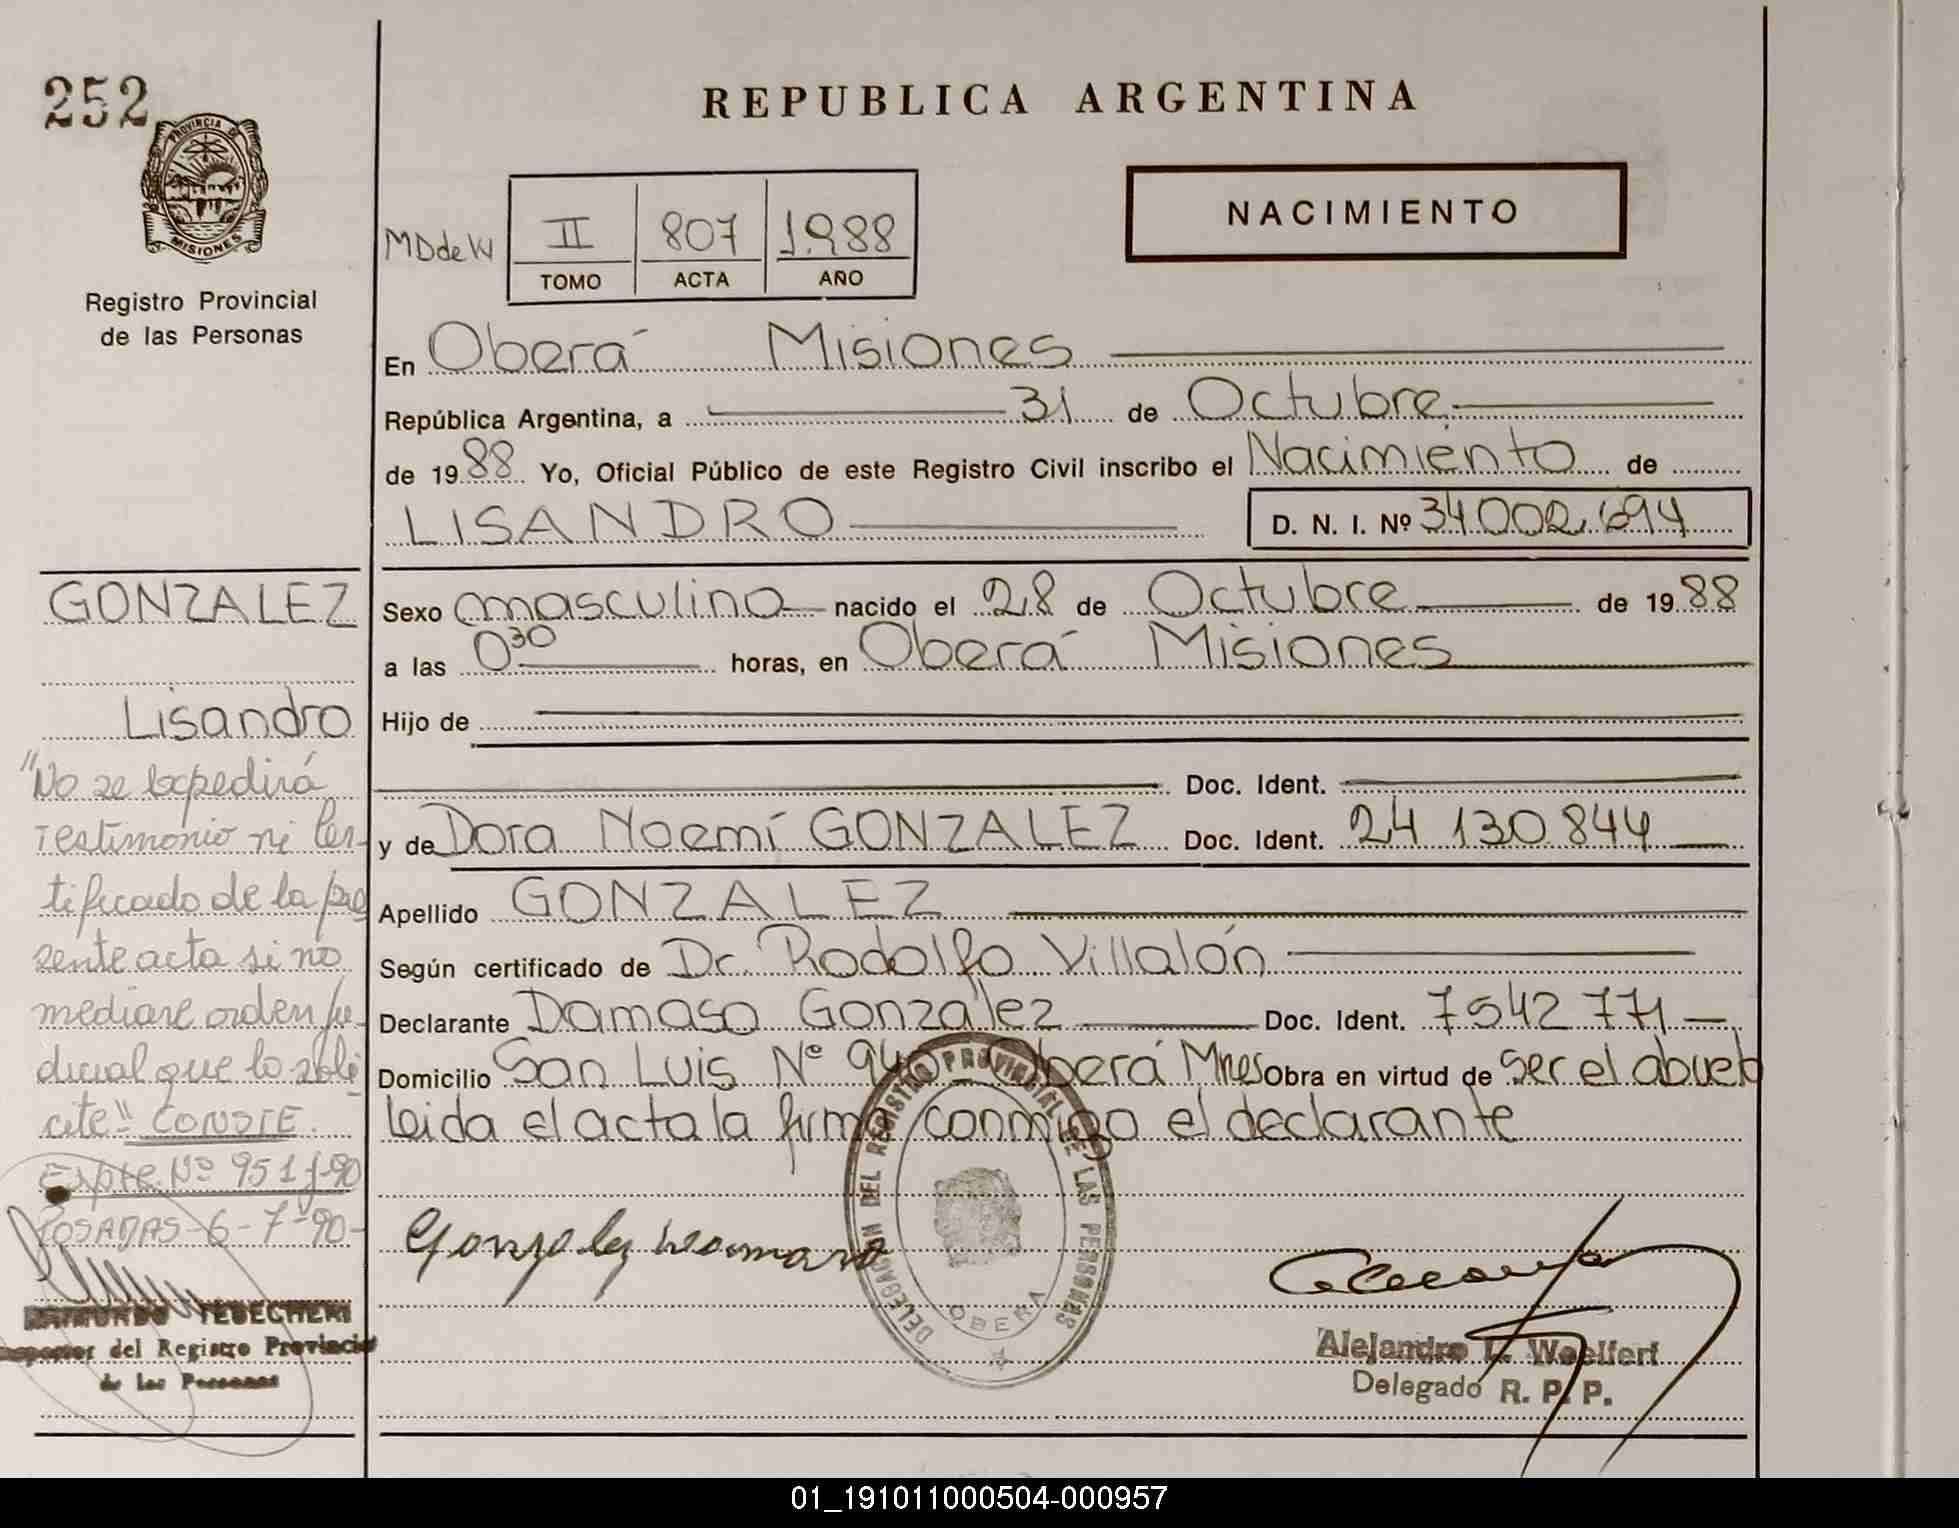 252
PROVINCIA DE
MISIONES
Registro Provincial
de las Personas
REPUBLICA ARGENTINA
NACIMIENTO
MDdeW
II 807 1.988
TOMO ACTA AÑO
En Oberá Misiones
República Argentina, a 31 de Octubre
de 1988 Yo, Oficial Público de este Registro Civil inscribo el Nacimiento de
LISANDRO
D. N. I. Nº 34.002.694
GONZALEZ
Lisandro
Sexo masculino nacido el 28 de Octubre de 1988
a las 0³⁰ horas, en Oberá Misiones
Hijo de
Doc. Ident.
y de Dora Noemí GONZALEZ Doc. Ident. 24 130.844
Apellido GONZALEZ
Según certificado de Dr. Rodolfo Villalón
Declarante Damaso Gonzalez Doc. Ident. 7542 771
Domicilio San Luis Nº 940 - Oberá Mnes Obra en virtud de ser el abuelo
leida el acta la firma conmigo el declarante
"No se expedirá
Testimonio ni Cer-
tificado de la pre
sente acta si no
mediare orden ju-
dicial que lo soli
cite" CONSTE.
Expte. Nº 951
POSADAS-6-7-90-
RAIMUNDO TEBECHERI
Inspector del Registro Provincial
de las Personas
DELEGACION DEL REGISTRO PROVINCIAL DE LAS PERSONAS
OBERA
Gonzalez
Alejandro L. Woelfert
Delegado R. P. P.
01_191011000504-000957